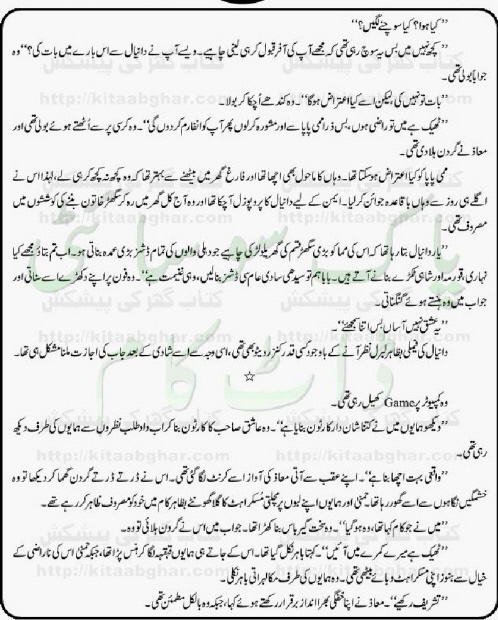 ’’کیا ہوا؟ کیا سوچنے لگیں؟‘‘
’’کچھ نہیں میں بس یہ سوچ رہی تھی کہ مجھے آپ کی آفر قبول کر لینی چاہیے۔ ویسے آپ نے دانیال سے اس بارے میں بات کی؟‘‘ وہ
جواباً بولی تھی۔
’’بات تو نہیں کی، لیکن اسے کیا اعتراض ہوگا‘‘۔ وہ کندھے اُچکا کر بولا۔
’’ٹھیک ہے میں تو راضی ہوں، بس ذرا ممی پاپا سے اور مشورہ کر لوں پھر آپ کو انفارم کردوں گی‘‘۔ وہ کرسی پر سے اُٹھتے ہوئے بولی تھی اور
معاذ نے گردن ہلا دی تھی۔
ممی پاپا کو کیا اعتراض ہوسکتا تھا۔ وہاں کا ماحول بھی اچھا تھا اور فارغ گھر میں بیٹھنے سے بہتر تھا کہ وہ کچھ نہ کچھ کر ہی لے، لہٰذا اس نے
اگلے ہی روز سے وہاں باقاعدہ جوائن کرلیا۔ ایمن کے لیے دانیال کا پروپوزل آچکا تھا اور وہ آج کل گھر میں رہ کر سگھڑ خاتون بننے کی کوششوں میں
مصروف تھی۔
’’یار دانیال بتا رہا تھا کہ اس کی مما کو بڑی سگھڑ قسم کی گھریلو لڑکی چاہیے جو دہلی والوں کی تمام ڈشز بڑی عمدہ بناتی ہو۔ اب تم بتاؤ مجھے کیا
نہاری، قورمہ اور شاہی ٹکڑے بنانے آتے ہیں۔ بابا ہم تو سیدھی سادی عام سی ڈشز بنالیں، وہی غنیمت ہے‘‘۔ وہ فون پر اپنے دکھڑے اسے سناتی اور
جواب میں وہ ہنستے ہوئے گنگناتی۔
’’یہ عشق نہیں آساں بس اتنا سمجھئے‘‘۔
دانیال کی فیملی بظاہر لبرل نظر آنے کے باوجود کسی قدر کنزرویٹو بھی تھی، اسی وجہ سے اسے شادی کے بعد جاب کی اجازت ملنا مشکل ہی تھا۔
☆
وہ کمپیوٹر پر Game کھیل رہی تھی۔
’’دیکھو ہمایوں میں نے کتنا شان دار کارٹون بنایا ہے‘‘۔ وہ عاشق صاحب کا کارٹون بنا کر اب داد طلب نظروں سے ہمایوں کی طرف دیکھ
رہی تھی۔
’’واقعی بہت اچھا بنا ہے‘‘۔ اپنے عقب سے آتی معاذ کی آواز اسے کرنٹ لگا گئی تھی۔ اس نے ڈرتے ڈرتے گردن گھما کر دیکھا تو وہ
خشمگیں نگاہوں سے اسے گھور رہا تھا۔ حمنیٰ اور ہمایوں اپنے لبوں پر مچلتی مُسکراہٹ کا گلا گھونٹے بظاہر کام میں خود کو مصروف ظاہر کر رہے تھے۔
’’میں نے جو کام کہا تھا، وہ ہو گیا‘‘۔ وہ سخت گیر باس بنا کھڑا تھا۔ جواب میں اس نے گردن ہلائی تو وہ۔
’’ٹھیک ہے میرے کمرے میں آئیں‘‘۔ کہتا باہر نکل گیا تھا۔ اس کے جاتے ہی ہمایوں قہقہہ لگا کر ہنس پڑا تھا، جبکہ حمنیٰ اس کی ناراضی کے
خیال سے ہنوز اپنی مسکراہٹ دبائے بیٹھی تھی۔ وہ ہمایوں کی طرف مکا لہراتی باہر نکلی۔
’’تشریف رکھیے‘‘۔ معاذ نے اپنا خفگی بھرا انداز برقرار رکھتے ہوئے کہا، جبکہ وہ بالکل مطمئن تھی۔
کتاب گھر کی پیشکش
http://kitaabghar.com
پاک سوسائٹی
ڈاٹ کام